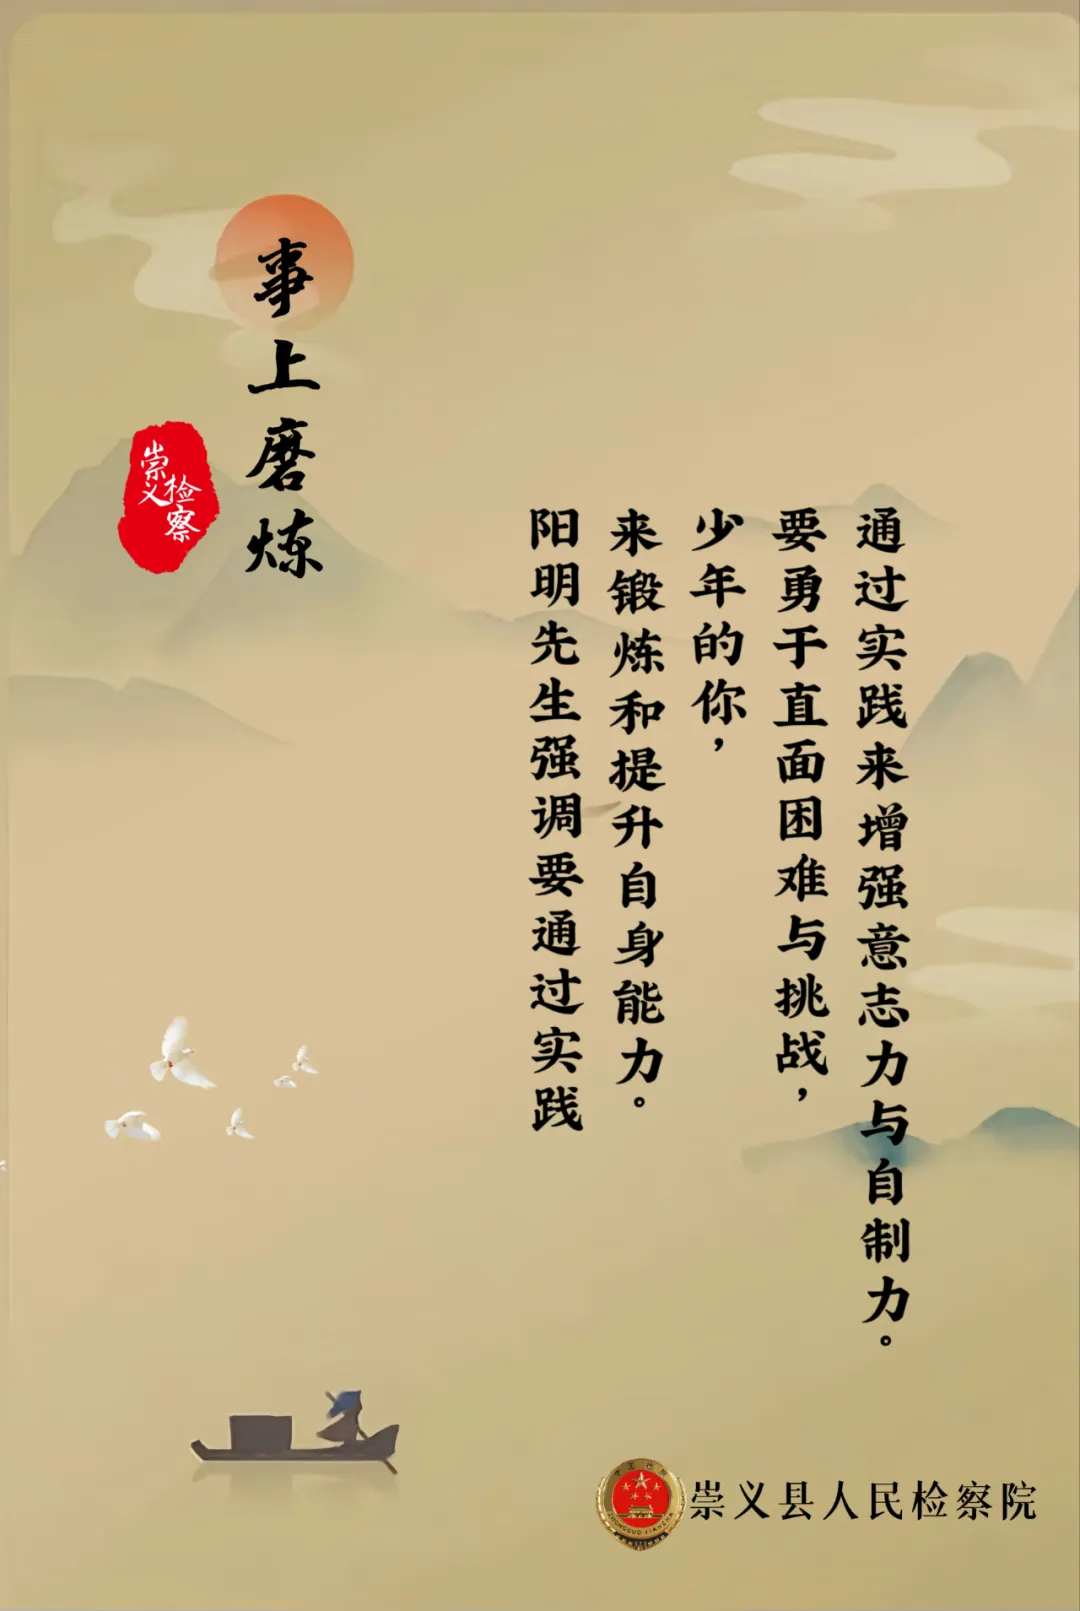 事上磨炼
崇义
检察
阳明先生强调要通过实践
来锻炼和提升自身能力。
少年的你，
要勇于直面困难与挑战，
通过实践来增强意志力与自制力。
崇义县人民检察院